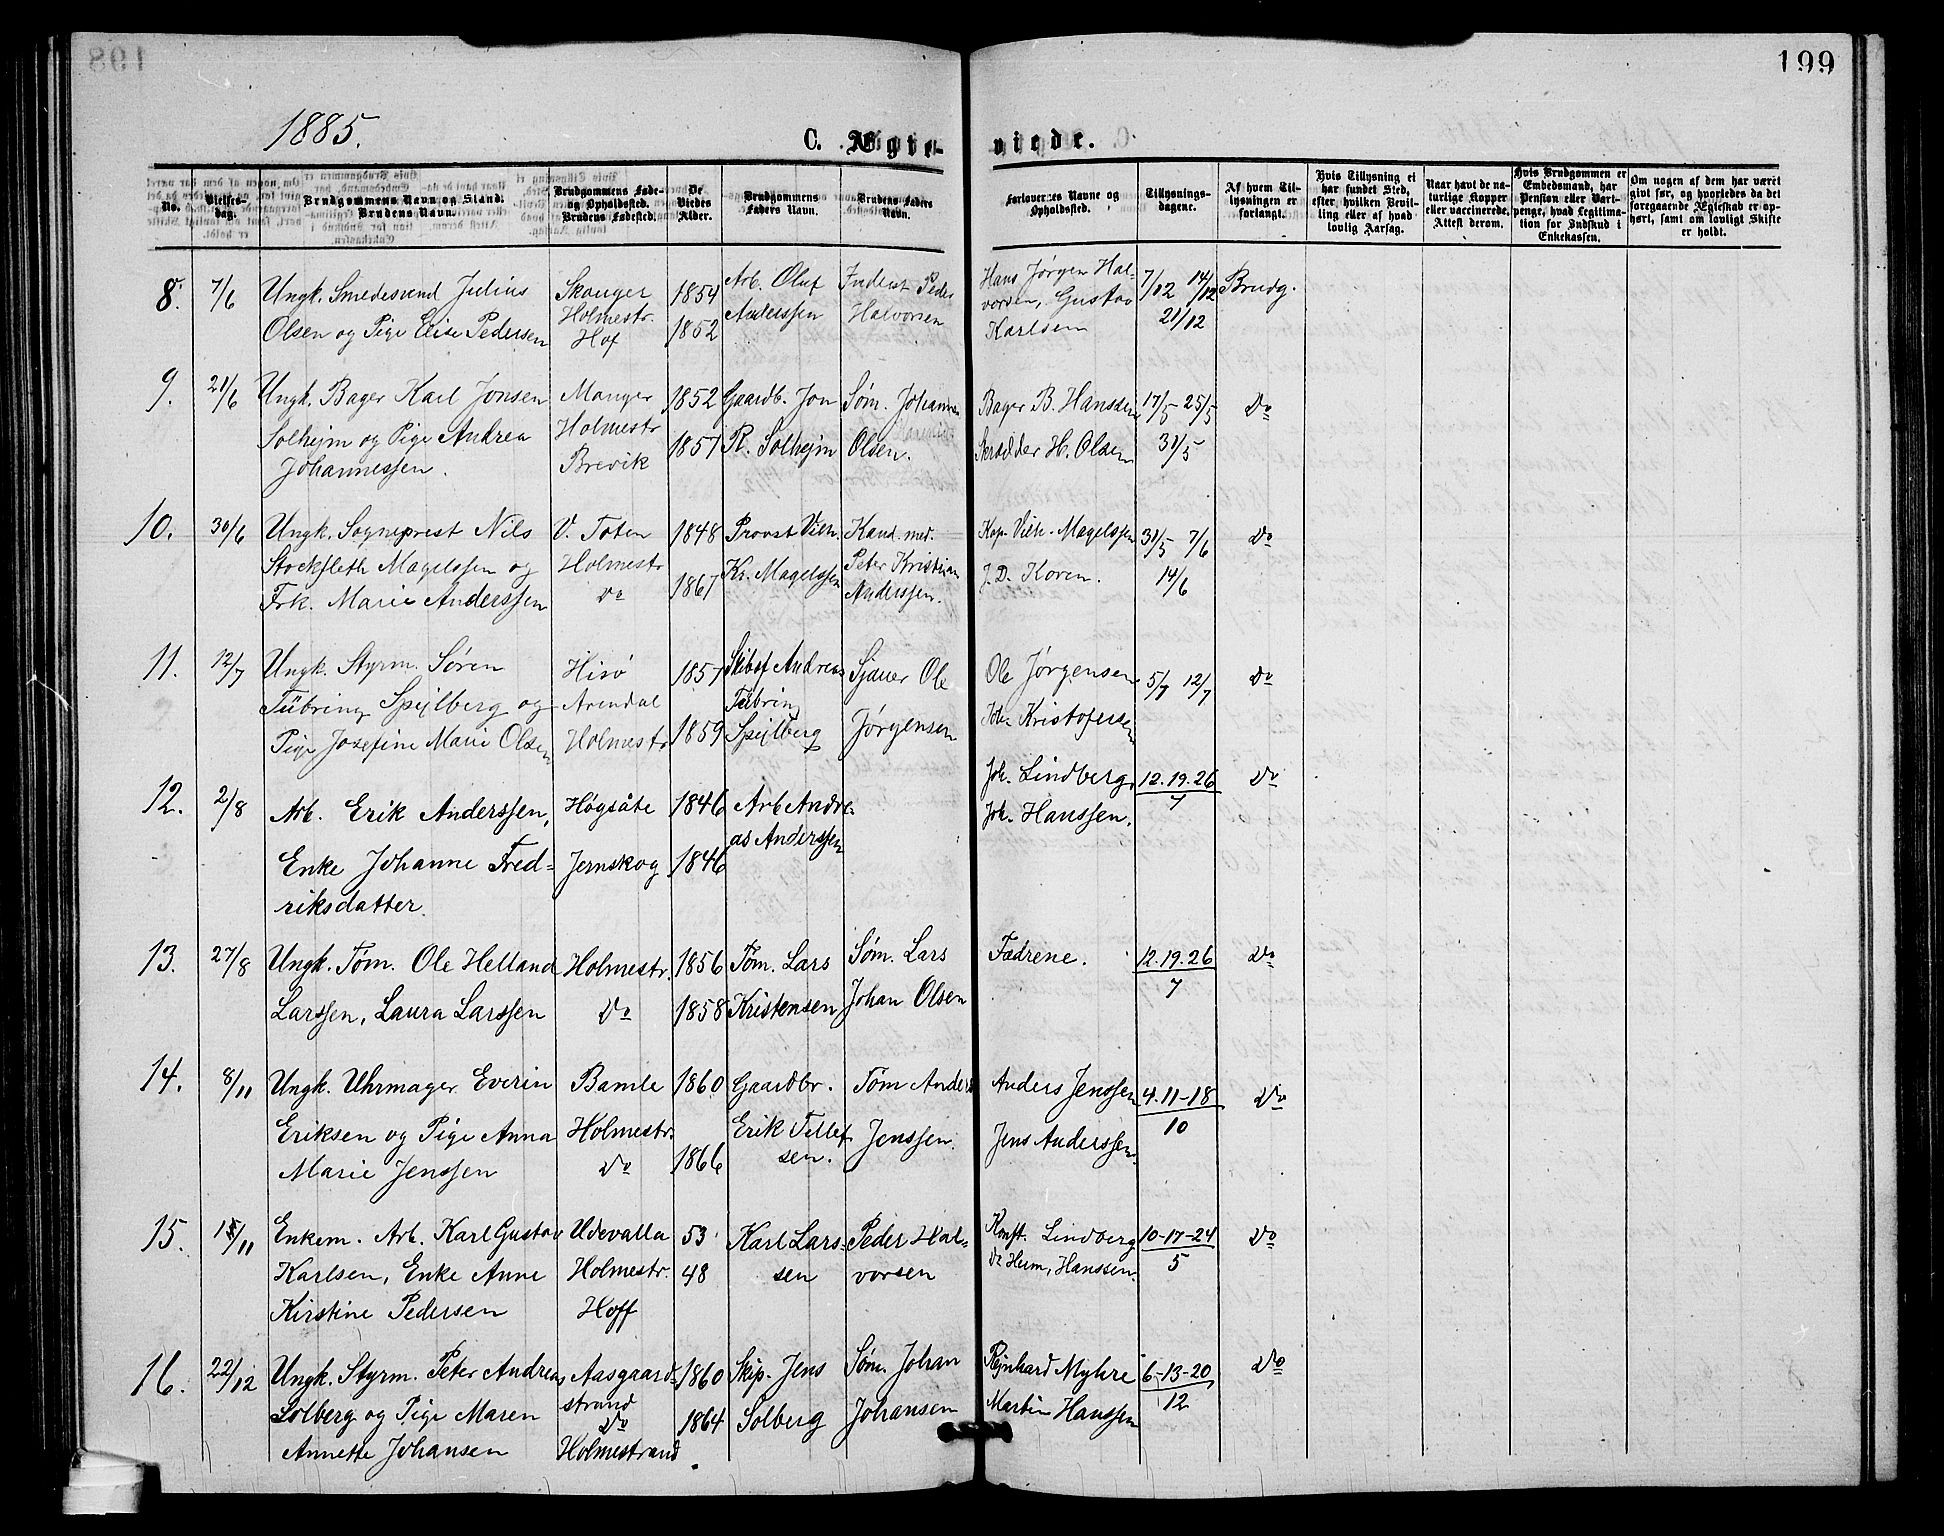 199
1885.
C. Ægteviede.
No.
Vielsesdag.
Brudgommens Navn og Stand. Brudens Navn.
Brudgommens Føde- og Opholdssted. Brudens Fødested.
De Viedes Alder.
Brudgommens Faders Navn.
Brudens Faders Navn.
Forlovernes Navne og Opholdssted.
Tillysningsdagene.
Af hvem Tillysningen er forlangt.
Hvis Tillysning ei har fundet Sted, efter hvilken Bevilling eller af hvad lovlig Aarsag.
Naar havt de naturlige Kopper eller vaccinerede, Attest derom.
Hvis Brudgommen er Embedsmand, har Pension eller Vartpenge, hvad Legitimation for Indskud i Enkekassen.
Om nogen af dem har været gift før, og hvorledes da det foregaaende Ægteskab er ophørt, samt om lovligt Skifte er holdt.
8. 7/6 Ungk. Smedesvend Julius Skouger 1854 Arb. Oluf Inderst Peder Hans Jörgen Hal- 7/12 14/12 Brudg.
Olsen og Pige Elise Pedersen Holmestr. Hof 1852 Anderssen Halvorsen vorsen, Gustav Karlsen 21/12
9. 21/6 Ungk. Bager Karl Jonsen Manger 1852 Gaardb. Jon Söm. Johannes Bager B. Hanssen 17/5 25/5 Do
Solhejm og Pige Andrea Holmestr 1857 R. Solhejm Olsen. Skrædder H. Olsen 31/5
Johannessen. Brevik
10. 30/6 Ungk. Sogneprest Nils V. Toten 1848 Provst Vilh. Kand. med. Kap. Vilh. Magelssen 31/5 7/6 Do
Stockfleth Magelssen og Holmestr 1867 Kr. Magelssen Peter Kristian J. D. Koren. 14/6
Frk. Marie Anderssen do Anderssen.
11. 12/7 Ungk. Styrm. Sören Hisö 1857 Skibsf Andreas Sjauer Ole Ole Jörgensen 5/7 12/7 Do
Tübring Spejlberg og Arendal Tübring Joh. Kristofersen
Pige Josefine Marie Olsen Holmestr 1859 Spejlberg Jörgensen
12. 2/8 Arb. Erik Anderssen, Högsäte 1846 Arb Andre- Joh. Lindberg, 12.19.26 Do
Enke Johanne Fred- Jernskog 1846 as Anderssen Joh. Hanssen. 7
riksdatter.
13. 27/8 Ungk. Töm. Ole Helland Holmestr. 1856 Töm. Lars Söm. Lars Fædrene. 12.19.26 Do
Larssen, Laura Larssen Do 1858 Kristensen Johan Olsen 7
14. 8/11 Ungk. Uhrmager Everin Bamle 1860 Gaardbr. Töm Anders Anders Jenssen 4-11-18 Do
Eriksen og Pige Anna Holmestr. Erik Tellef Jenssen. Jens Anderssen. 10
Marie Jenssen do 1866 sen.
15. /11 Enkem. Arb. Karl Gustav Udevalla 53 Karl Lars- Peder Hal- Konst. Lindberg 10-17-24 Do
Karlsen, Enke Anne Holmestr. 48 sen vorsen Hanssen. 5
Kirstine Pedersen Hoff
16. 22/12 Ungk. Styrm. Peter Andreas Aasgaard- 1860 Skip. Jens Söm. Johan Rejnhard Myhre 6-13-20 Do
Solberg og Pige Maren strand do 1864 Solberg Johansen Martin Hanssen 12
Annette Johansen Holmestrand